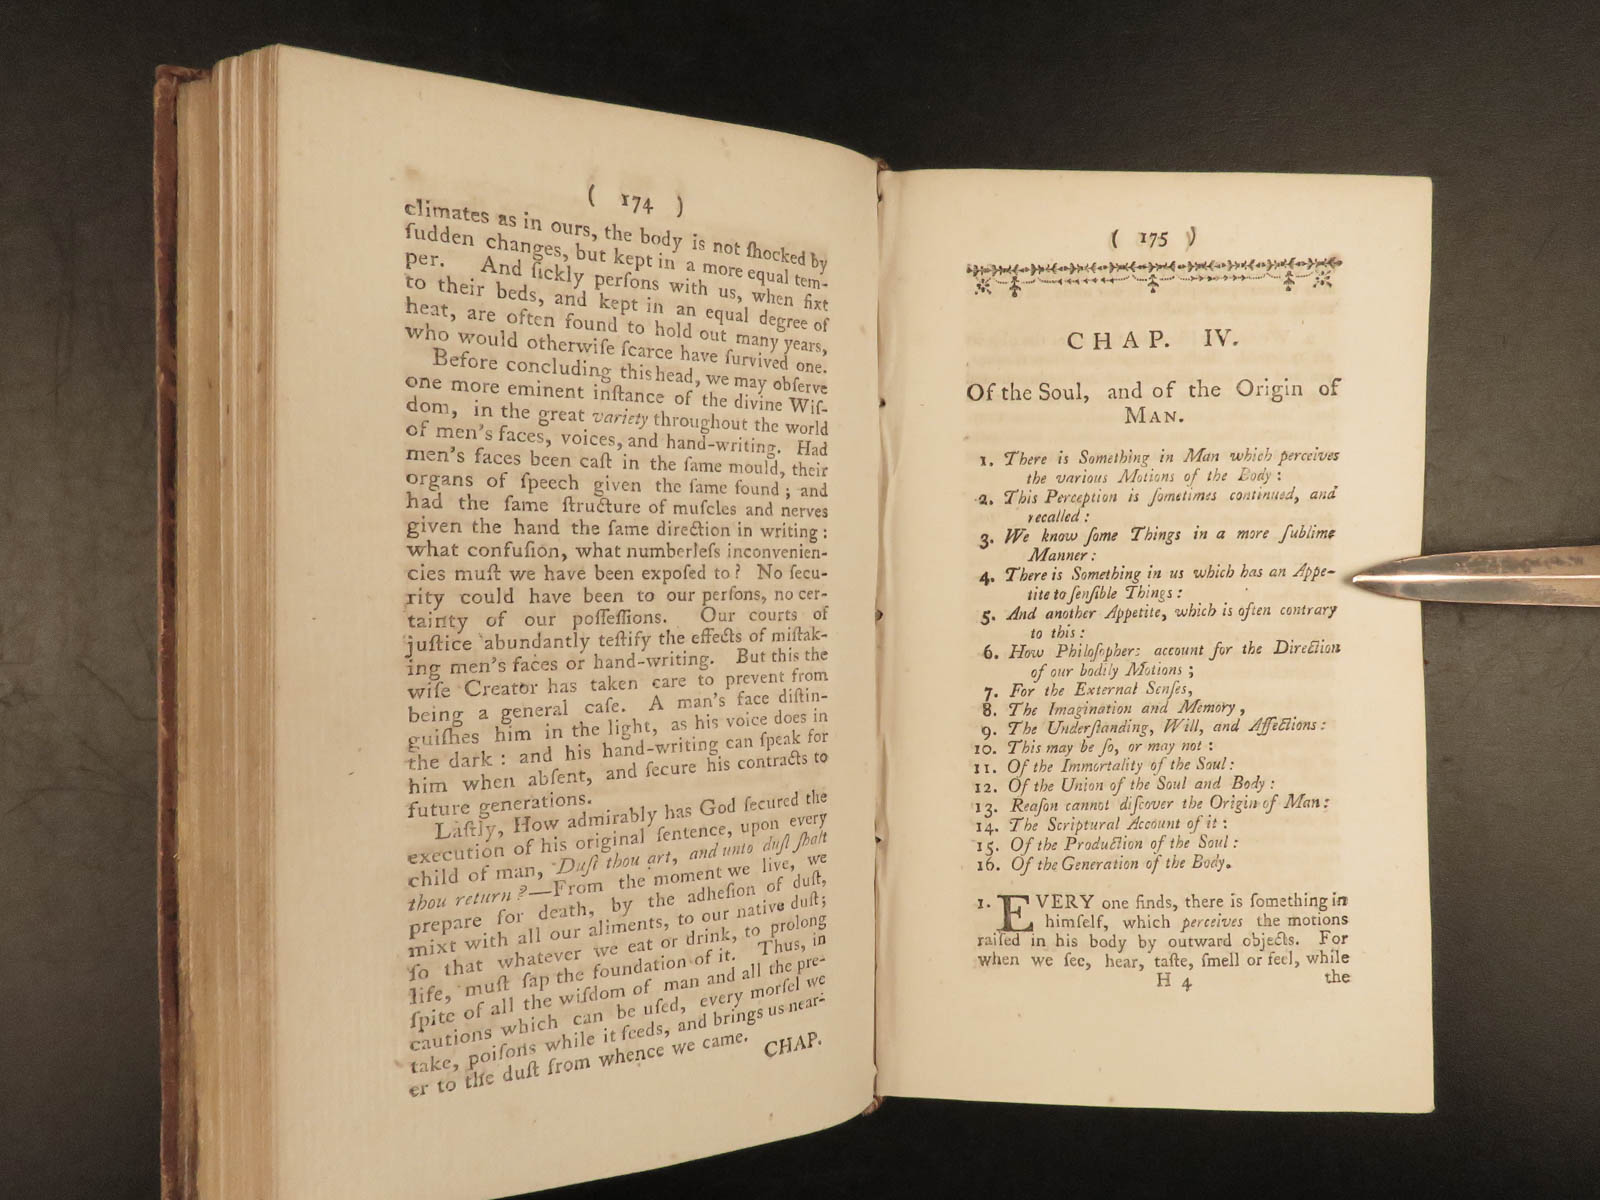 ( 174 )
climates as in ours, the body is not ſhocked by
ſudden changes, but kept in a more equal tem-
per. And ſickly perſons with us, when fixt
to their beds, and kept in an equal degree of
heat, are often found to hold out many years,
who would otherwiſe ſcarce have ſurvived one.
Before concluding this head, we may obſerve
one more eminent inſtance of the divine Wiſ-
dom, in the great variety throughout the world
of men's faces, voices, and hand-writing. Had
men's faces been caſt in the ſame mould, their
organs of ſpeech given the ſame found; and
had the ſame ſtructure of muſcles and nerves
given the hand the ſame direction in writing:
what confuſion, what numberleſs inconvenien-
cies muſt we have been expoſed to? No ſecu-
rity could have been to our perſons, no cer-
tainty of our poſſeſſions. Our courts of
juſtice abundantly teſtify the effects of miſtak-
ing men's faces or hand-writing. But this the
wiſe Creator has taken care to prevent from
being a general caſe. A man's face diſtin-
guiſhes him in the light, as his voice does in
the dark: and his hand-writing can ſpeak for
him when abſent, and ſecure his contracts to
future generations.
Laſtly, How admirably has God ſecured the
execution of his original ſentence, upon every
child of man, Duſt thou art, and unto duſt ſhalt
thou return?—From the moment we live, we
prepare for death, by the adheſion of duſt,
mixt with all our aliments, to our native duſt;
ſo that whatever we eat or drink, to prolong
life, muſt ſap the foundation of it. Thus, in
ſpite of all the wiſdom of man and all the pre-
cautions which can be uſed, every morſel we
take, poiſons while it feeds, and brings us near-
er to the duſt from whence we came.
CHAP.
( 175 )
CHAP. IV.
Of the Soul, and of the Origin of
MAN.
1. There is Something in Man which perceives
the various Motions of the Body:
2. This Perception is ſometimes continued, and
recalled:
3. We know ſome Things in a more ſublime
Manner:
4. There is Something in us which has an Appe-
tite to ſenſible Things:
5. And another Appetite, which is often contrary
to this:
6. How Philoſophers account for the Direction
of our bodily Motions;
7. For the External Senſes,
8. The Imagination and Memory,
9. The Underſtanding, Will, and Affections:
10. This may be ſo, or may not:
11. Of the Immortality of the Soul:
12. Of the Union of the Soul and Body:
13. Reaſon cannot diſcover the Origin of Man:
14. The Scriptural Account of it:
15. Of the Production of the Soul:
16. Of the Generation of the Body.
1. EVERY one finds, there is ſomething in
himſelf, which perceives the motions
raiſed in his body by outward objects. For
when we ſee, hear, taſte, ſmell or feel, while
H 4 the